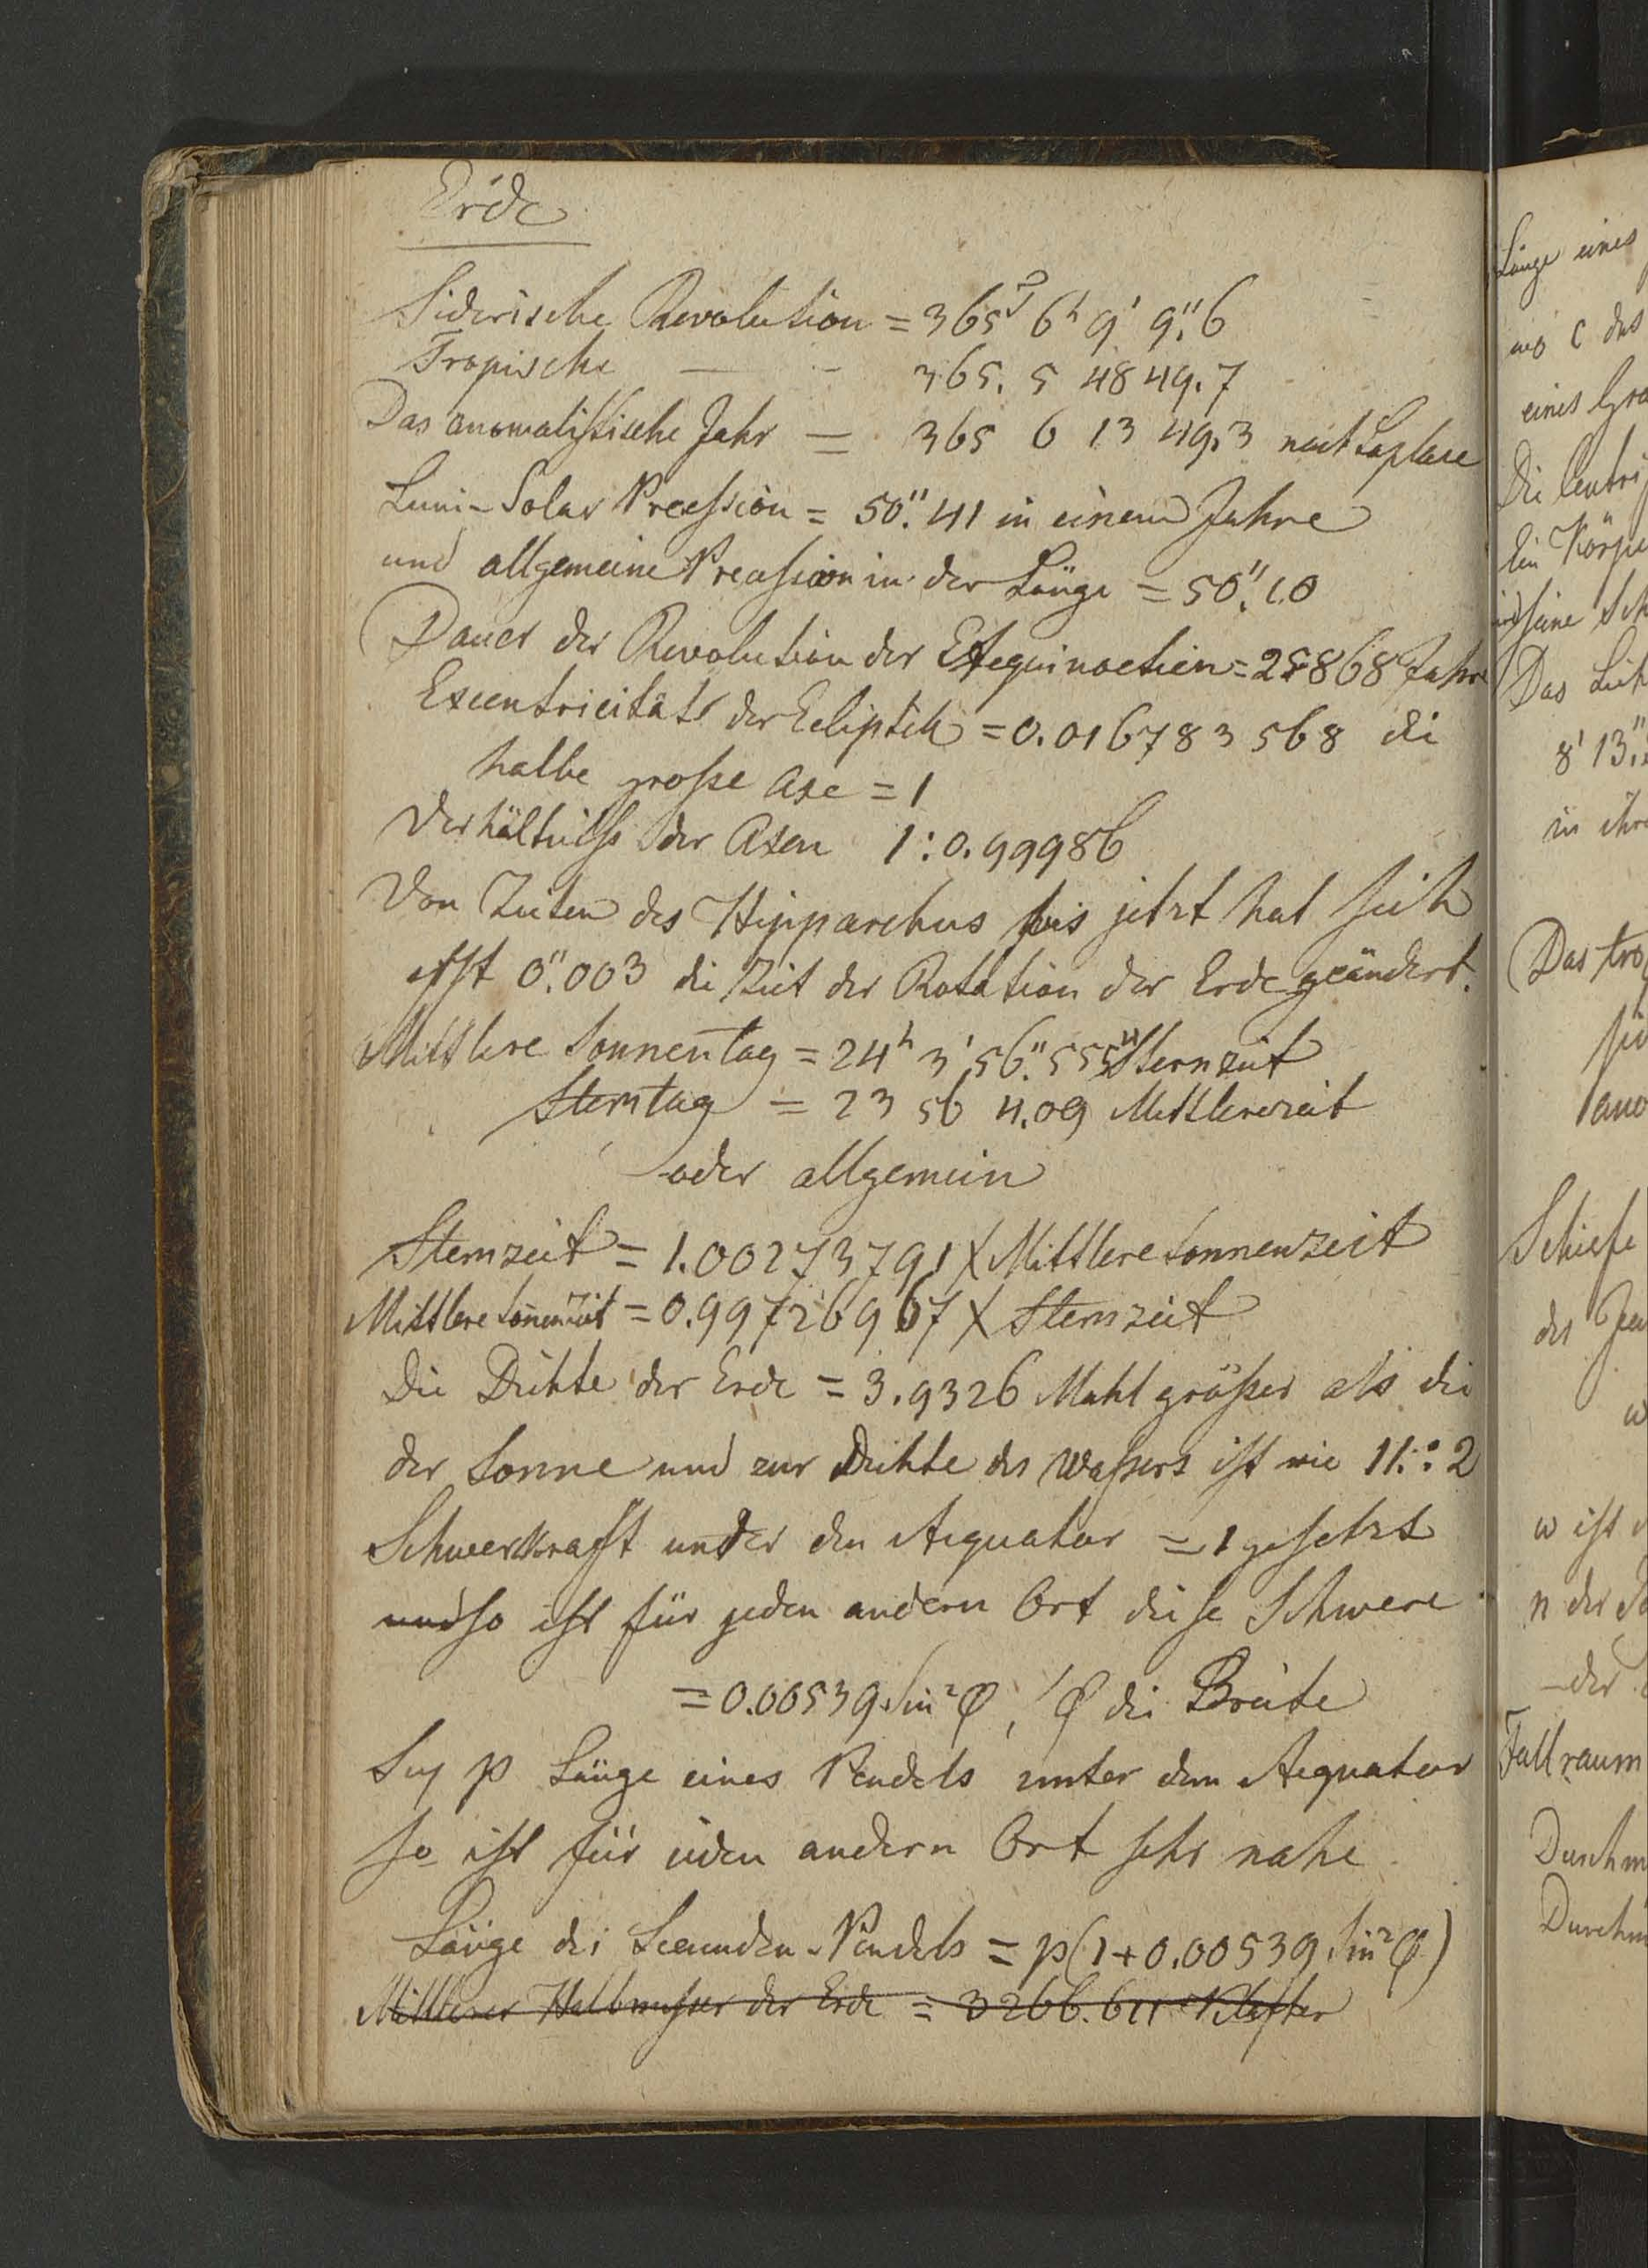 Erde
Siderische Revolution = 365ᵀ 6ʰ 9' 9."6
Tropische — - 365. 5 48 49.7
Das anomalistische Jahr = 365 6 13 49.3 nach Laplace
Luni-Solar Precession = 50."41 in einem Jahre
und allgemeine Precession in der Länge = 50."10
Dauer der Revolution der Aequinoctien = 25868 Jahre
Excentricität der Ecliptik = 0.016783568 die
halbe große Axe = 1
Verhältniß der Axen 1 : 0.99986
Von Zeiten des Hipparchus bis jetzt hat sich
erst 0."003 die Zeit der Rotation der Erde geändert.
Mittlere Sonnentag = 24ʰ 3' 56."555 Sternzeit
Sterntag = 23 56 4.09 Mittlerezeit
oder allgemein
Sternzeit = 1.002737791 X Mittlere Sonnenzeit
Mittlere Soñenzeit = 0.99726967 X Sternzeit
Die Dichte der Erde = 3.9326 Mahl größer als die
der Sonne und zur Dichte des Waßers ist wie 11 : 2
Schwerkraft unter den Aequator = 1 gesetzt
und so ist für jeden andern Ort diese Schwere
= 0.00539 Sin²φ, φ die Breite
Sey p Länge eines Pendels unter dem Aequator
so ist für jeden andern Ort sehr nahe
Länge des Secunden-Pendels = p(1+0.00539 Sin²φ)
Mittlerer Halbmesser der Erde = 3266.611 Klafter
Länge eines
wo c das
eines Gra
Die Centri
Ein Körpe
seine Sch
Das Lich
8' 13."
in ihre
Das tro
ano
Schiefe
des
w
w ist
n der
der
Fallraum
Durchm
Durchm